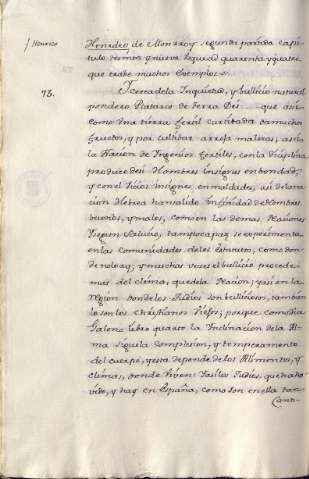 / Henrico
Henrico de Monzroy segunda partada capi-
tulo treinta y nueve seguid quarenta y quatro
que trahe muchos exemplos.
73.
Acerca de la Inquietud, y bullicio natural
pondero Platarco de Serra Dei que asi
como una tierra fertil cultibada da muchos
fructos, y por cultibar arroja malezas, asi
la Nacion de Ingenios fertiles, con la disciplina
produce de si Hombres insignes en bondad,
y con el Vicio insignes, en maldades, asi de la na-
cion Hebrea han salido infinidad de Hombres
buenos, y malos, como en las demas Naciones
segun Salucio, tampoco paz se experimenta
en las Comunidades de los Estatutos, como don-
de no los ay; y muchas veces el bullicio procede
mas del clima, que de la Nacion; y asi en la
region donde los Judios son bulliciosos, tambien
lo son los Christianos Viejos; porque como dice
Galeno libro quarto la Inclinacion de la Al-
ma sigue la Complesion, y temperamento
del cuerpo, y esta depende de los Alimentos, y
clima, donde viven Vasilio Judios, que ha ha-
vido, y hay en España, como son en ella tan
Cons-